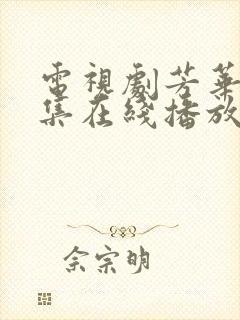 電視劇芳華
集在綫播放
佘宗明